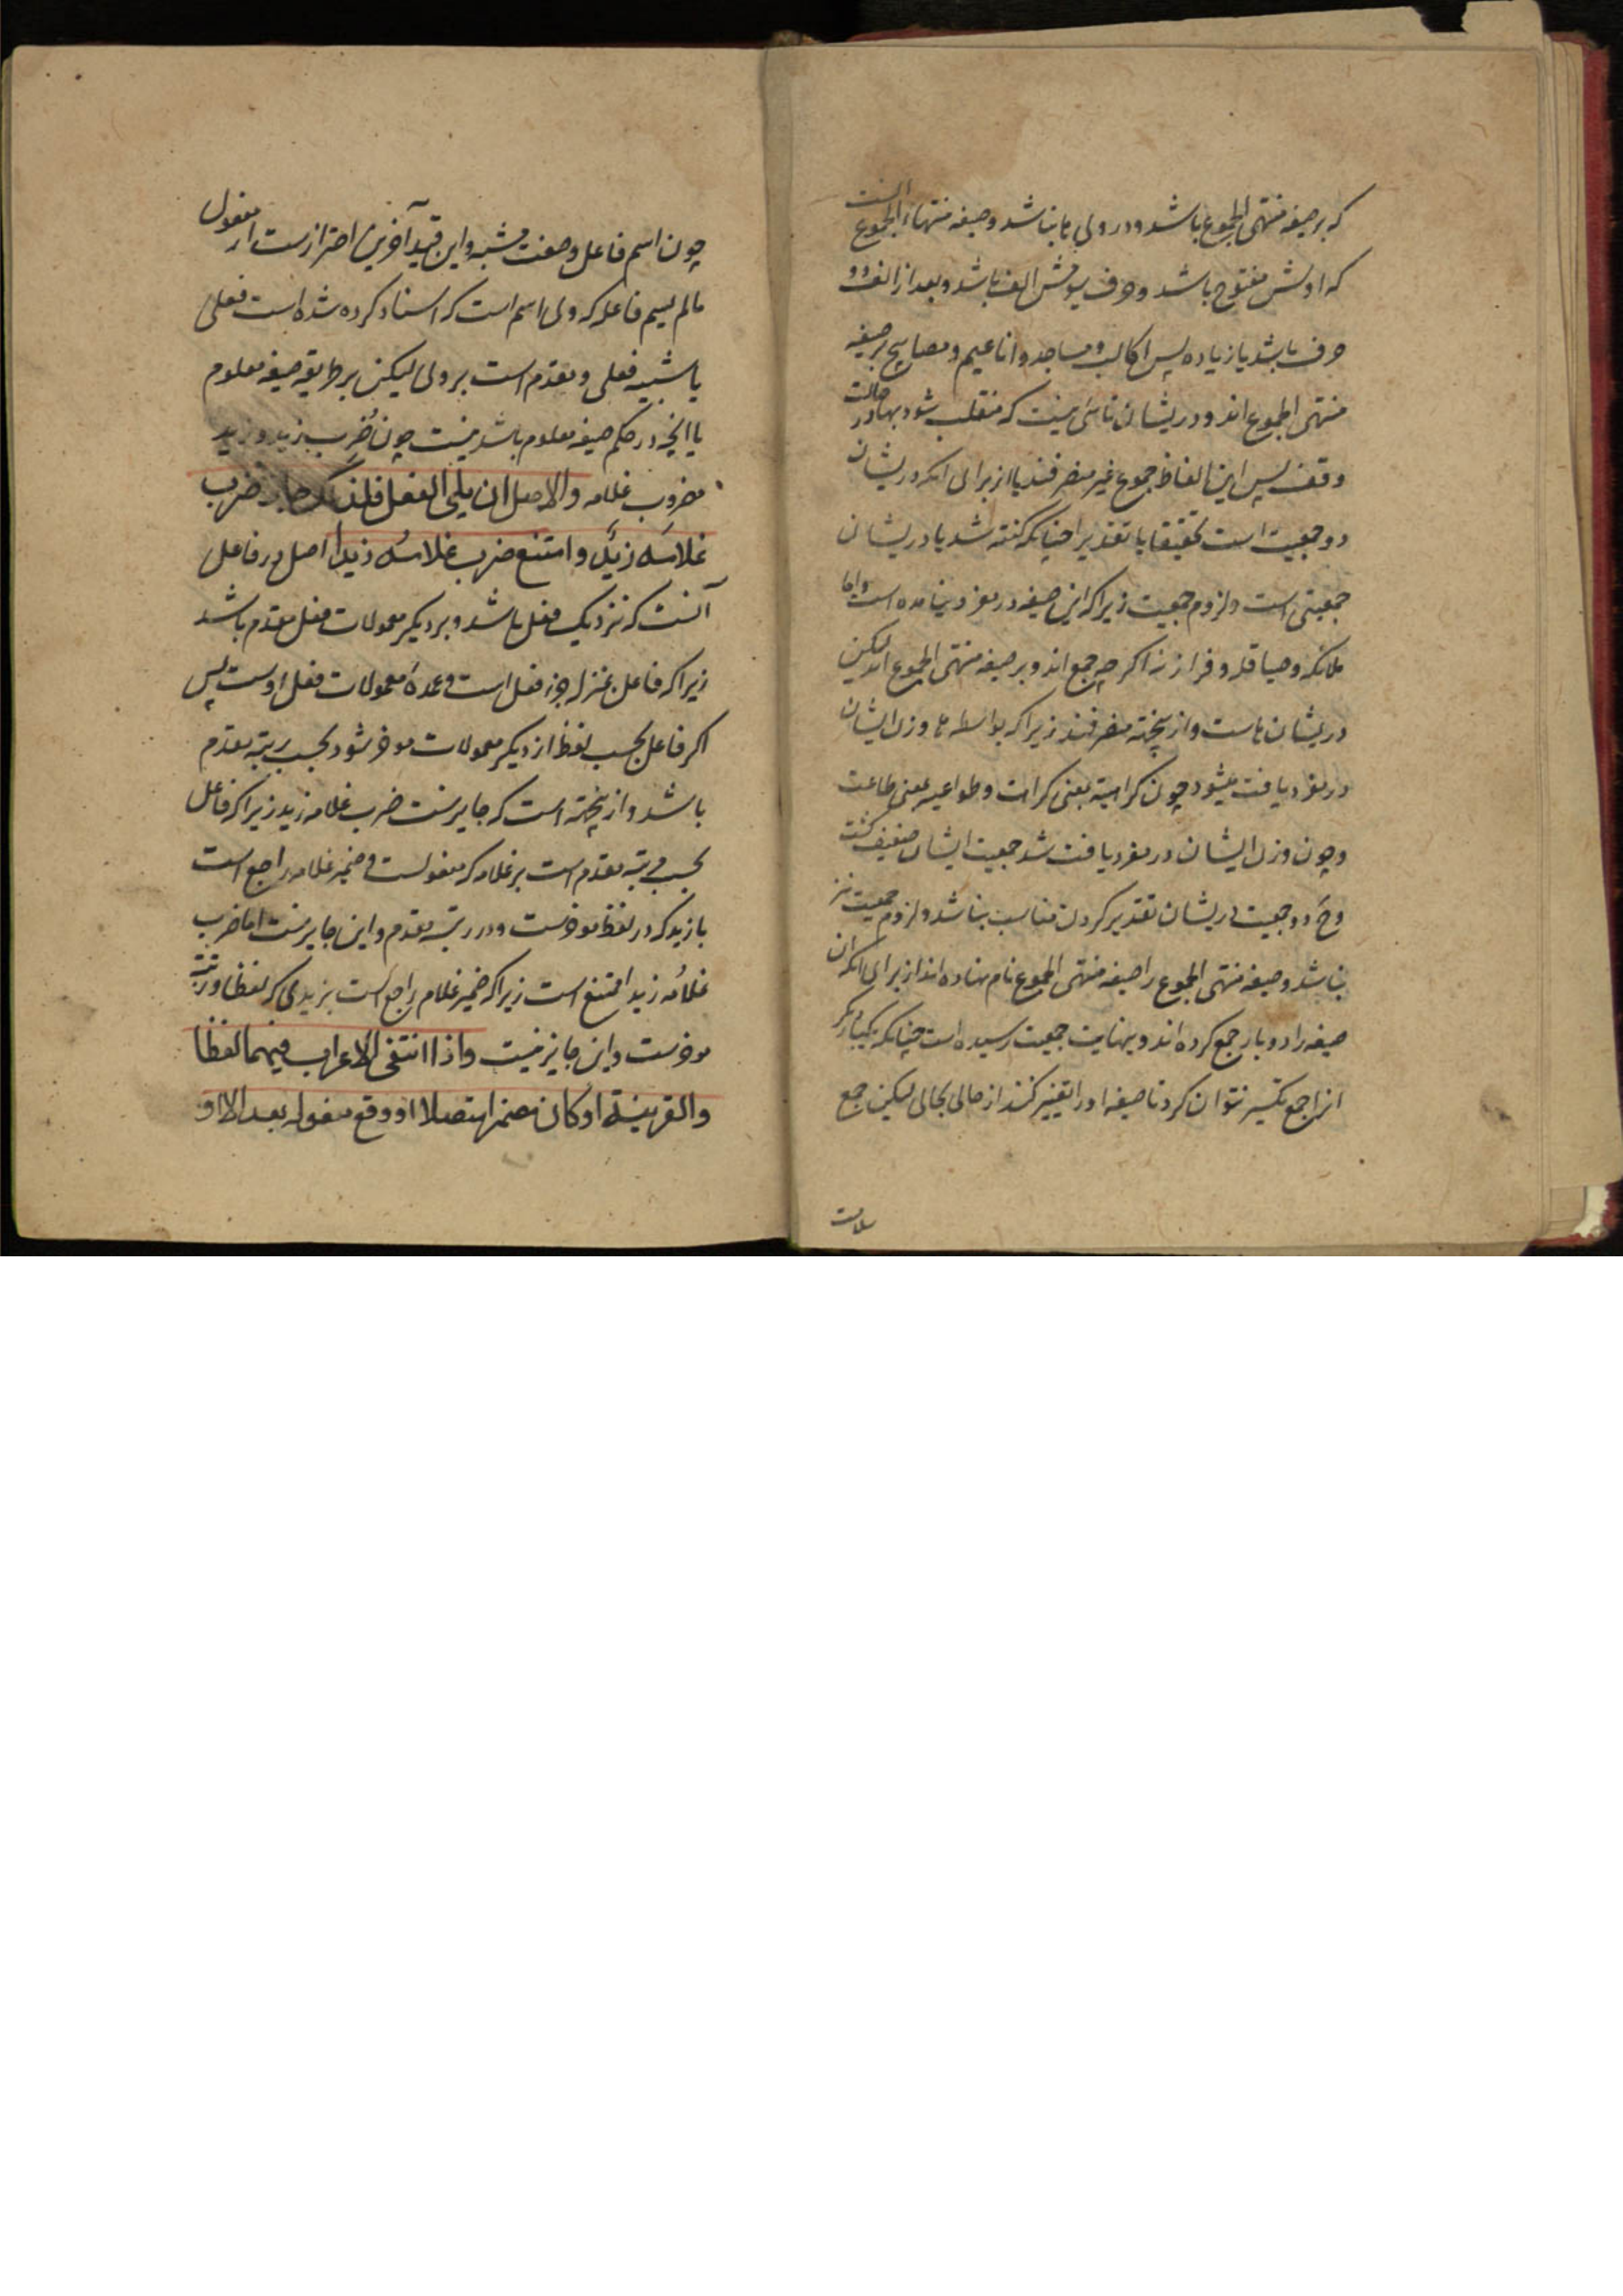 که بر صیغه منتهی الجموع باشد و در ولی تا نباشد و صیغه منتهاء الجموع آنست
که اولش مفتوح باشد و حرف سیومش الف باشد و بعد از الف دو
حرف باشد یا زیاده پس اکالب و مساجد و اناعیم و مصابیح بر صیغه
منتهی الجموع اند و در یشان تائی نیست که منقلب شود بها در حالت
وقف پس این الفاظ جموع غیر منصرفند یا از برای انکه در یشان
دو جمعیت است تحقیقا یا تقدیرا چنانکه گفته شد یا در یشان
جمعیتی است و لزوم جمعیت زیرا که این صیغه در مفرد نیامده است و اما
ملائکه و صیاقله و فرازنه اکر چه جمع اند و بر صیغه منتهی الجموع اند لیکن
در یشان تاست و از ینجهته منصرفند زیرا که بواسطه تا وزن ایشان
در مفرد یافت میشود چون کراهیة بمعنی کراهت و طواعیه بمعنی طاعت
و چون وزن ایشان در مفرد یافت شد جمعیت ایشان ضعیف گشت
وح دو جمعیت در یشان تقدیر کردن مناسب نباشد و لزوم جمعیت نیز
نباشد و صیغه منتهی الجموع را صیغه منتهی الجموع نام نهاده اند از برای انکه ان
صیغه را دو بار جمع کرده اند و بنهایت جمعیت رسیده است چنانکه یکبار دیکر
انرا جمع تکسیر نتوان کرد تا صیغه او را تغییر کنند از حالی بحالی لیکن جمع
سلامت
چون اسم فاعل و صفت مشبه و این قید آخرین احترازست از مفعول
مالم یسم فاعله که ولی اسم است که اسناد کرده شده است فعلی
یا شبه فعلی و مقدم است بر ولی لیکن بر طریقه صیغه معلوم
یا انچه در حکم صیغه معلوم باشد نیست چون ضُرِب زید و زید
مضروب غلامه والاصل ان یلی الفعل فلذلک جاز ضرب
غلامَه زیدٌ و امتنع ضرب غلامُه زیدا اصل در فاعل
آنست که نزدیک فعل باشد و بر دیکر معمولات فعل مقدم باشد
زیرا که فاعل بمنزله جزء فعل است و عمدهٔ معمولات فعل اوست پس
اکر فاعل بحسب لفظ از دیکر معمولات موخر شود بحسب رتبه مقدم
باشد و از ینجهته است که جایزست ضرب غلامه زید زیرا که فاعل
بحسب رتبه مقدم است بر غلامه که مفعولست و ضمیر غلامه راجع است
با زید که در لفظ موخرست و در رتبه مقدم و این جایزست اما ضرب
غلامُه زیدا ممتنع است زیرا که ضمیر غلام راجع است بزیدی که لفظا و رتبة
موخرست و این جایز نیست واذا انتفی الاعراب فیهما لفظا
والقرینة او کان مضمرا متصلا او وقع مفعوله بعد الا او